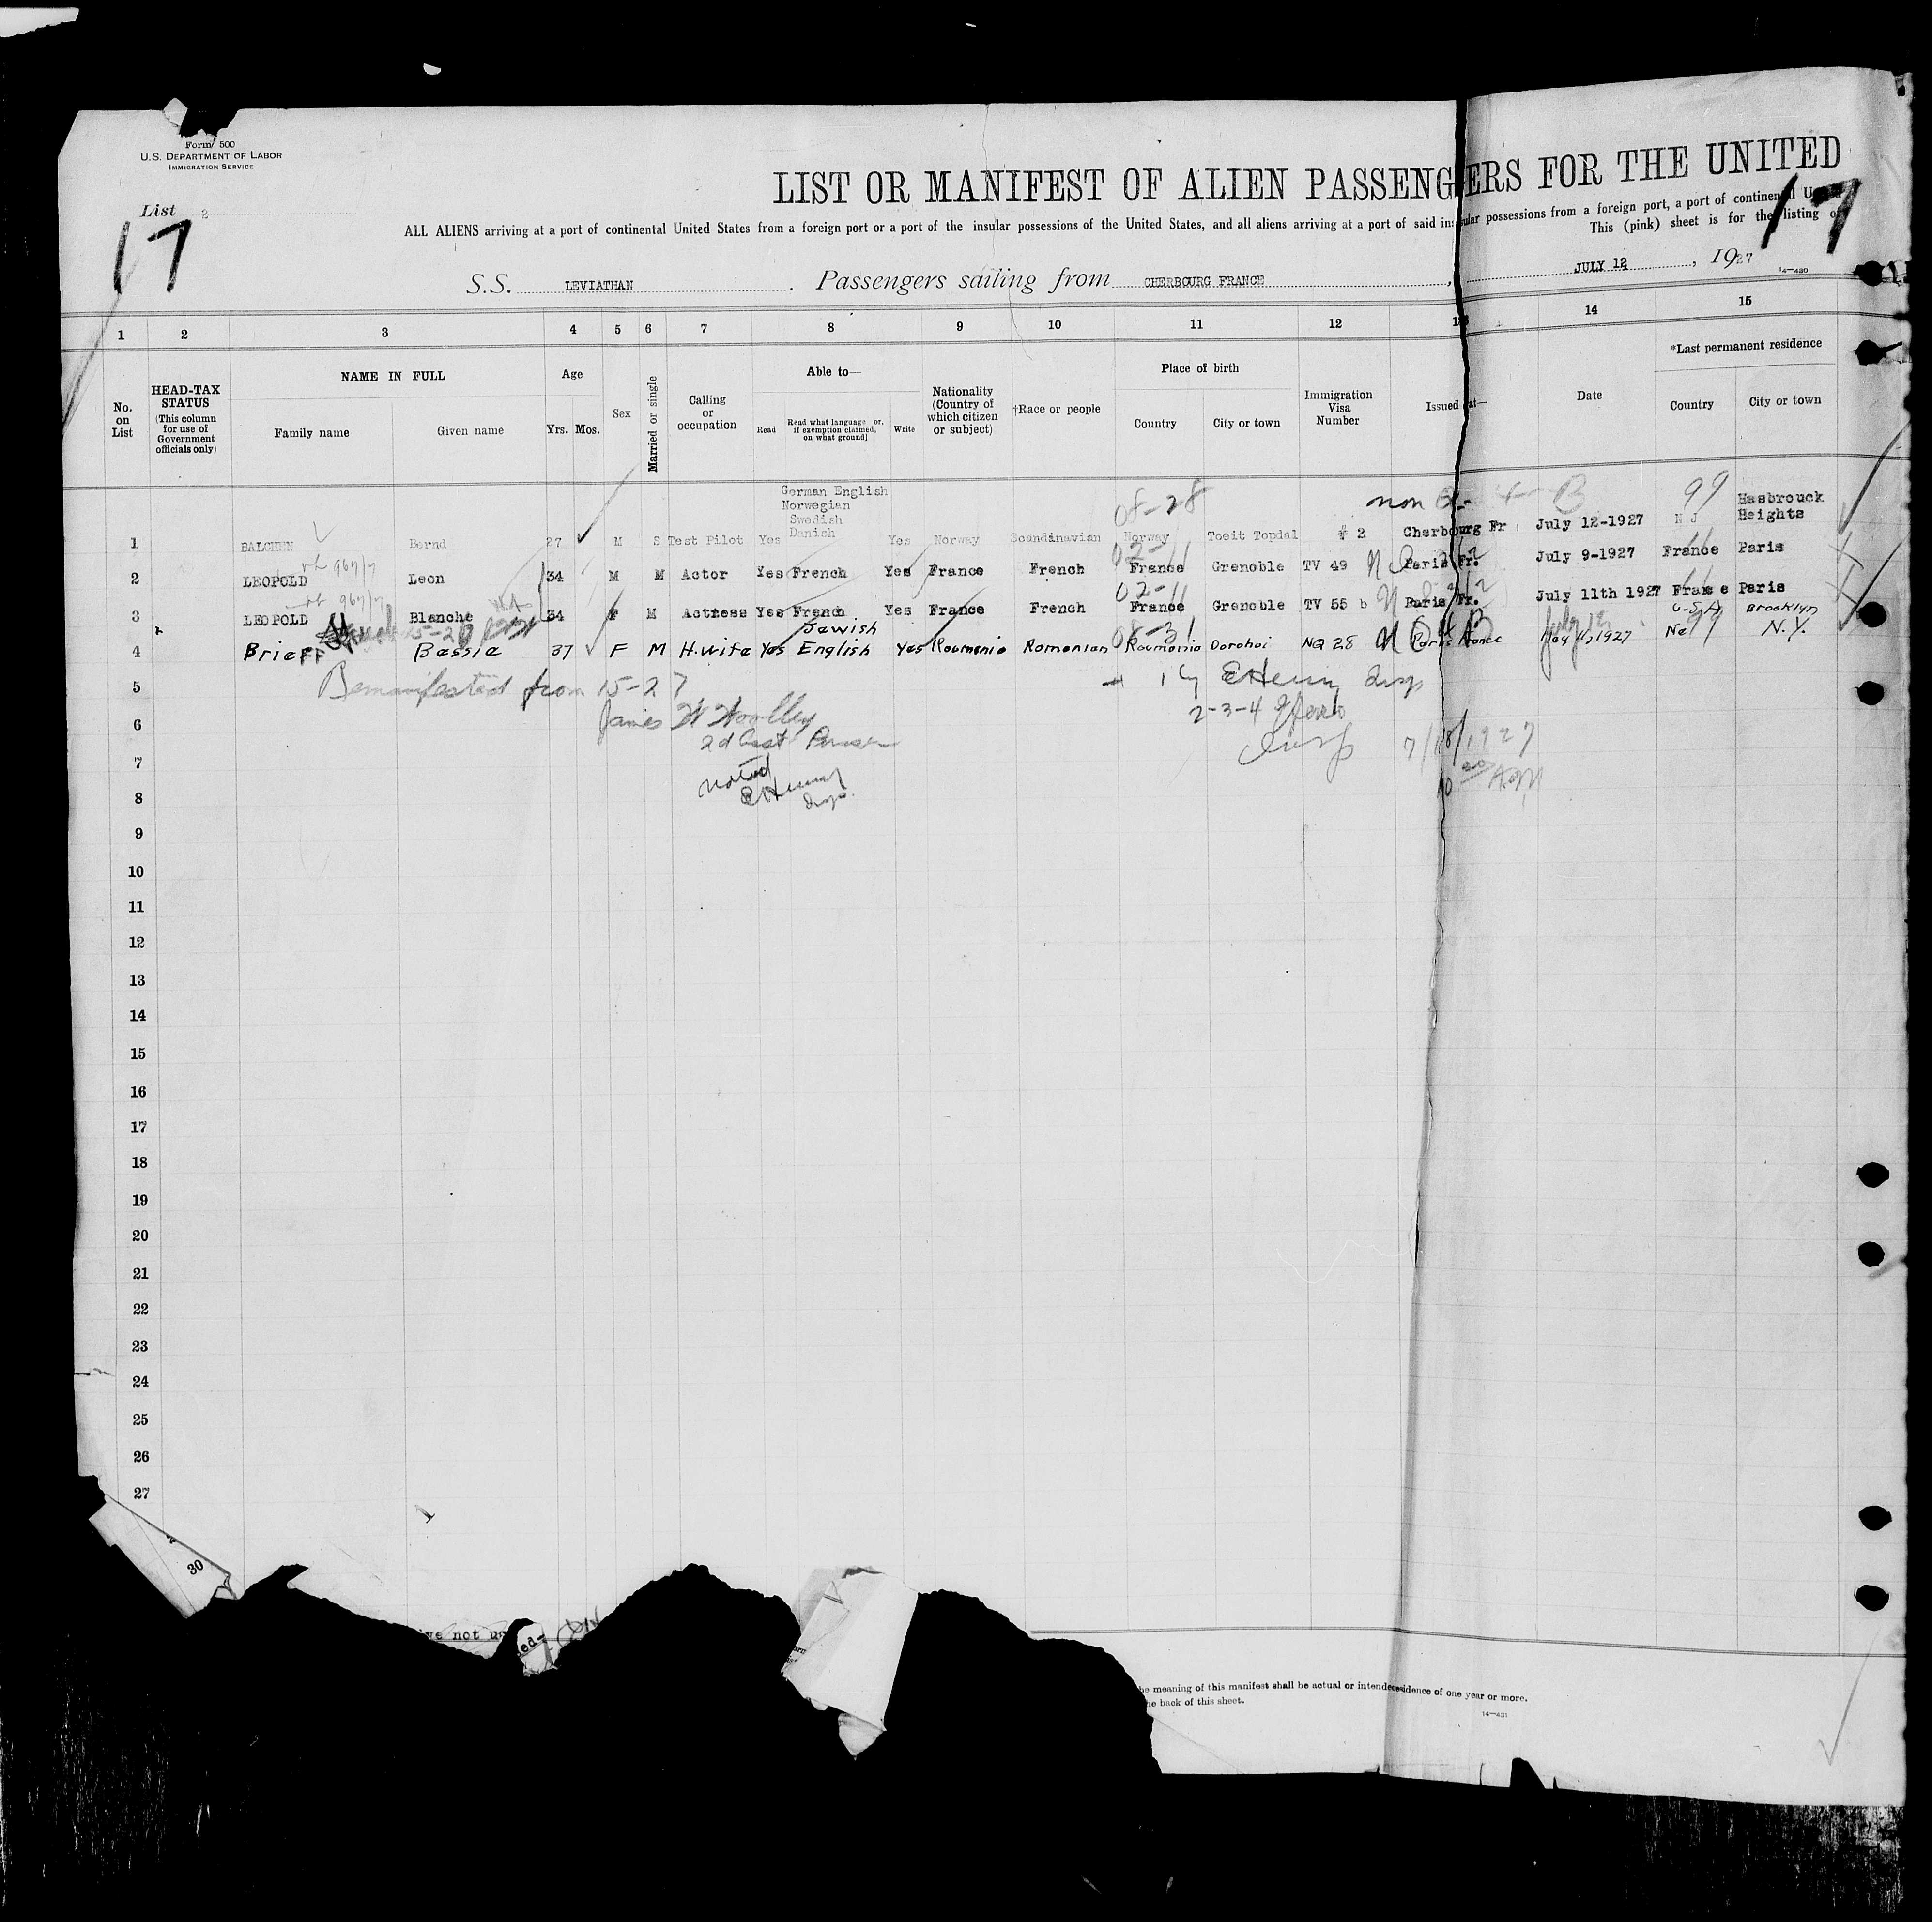 Form 500
U.S. DEPARTMENT OF LABOR
IMMIGRATION SERVICE
LIST OR MANIFEST OF ALIEN PASSENGERS FOR THE UNITED
List 2
17
17
ALL ALIENS arriving at a port of continental United States from a foreign port or a port of the insular possessions of the United States, and all aliens arriving at a port of said insular possessions from a foreign port, a port of continental
This (pink) sheet is for the listing
S.S. LEVIATHAN Passengers sailing from CHERBOURG FRANCE, JULY 12, 1927
14—430
1 2 3 4 5 6 7 8 9 10 11 12 13 14 15
No. on List
HEAD-TAX STATUS (This column for use of Government officials only)
NAME IN FULL
Family name Given name
Age
Yrs. Mos.
Sex
Married or single
Calling or occupation
Able to—
Read Read what language or, if exemption claimed, on what ground Write
Nationality (Country of which citizen or subject)
†Race or people
Place of birth
Country City or town
Immigration Visa Number
Issued at—
Date
*Last permanent residence
Country City or town
German English
Norwegian
Swedish
Danish
08-28
non
4-B
99
1 BALCHEN Bernd 27 M S Test Pilot Yes Yes Norway Scandinavian Norway Toeit Topdal # 2 Cherbourg Fr July 12-1927 N J Hasbrouck Heights
2 LEOPOLD Leon 34 M M Actor Yes French Yes France French France Grenoble TV 49 Paris Fr. July 9-1927 France Paris
02-11
3 LEOPOLD Blanche 34 F M Actress Yes French Yes France French France Grenoble TV 55 b Paris Fr. July 11th 1927 France Paris
02-11
4 Brieff Bessie 37 F M H.wife Yes Jewish English Yes Roumania Romanian Roumania Dorohoi NQ 28 Paris France May 4, 1927 U.S.A. Brooklyn N.Y.
5
from 15-27
6
James W Woolley
2-3-4
7
7/18/1927
noted
8
9
10
11
12
13
14
15
16
17
18
19
20
21
22
23
24
25
26
27
30
ive not
ed-
he meaning of this manifest shall be actual or intended residence of one year or more.
he back of this sheet.
14—431